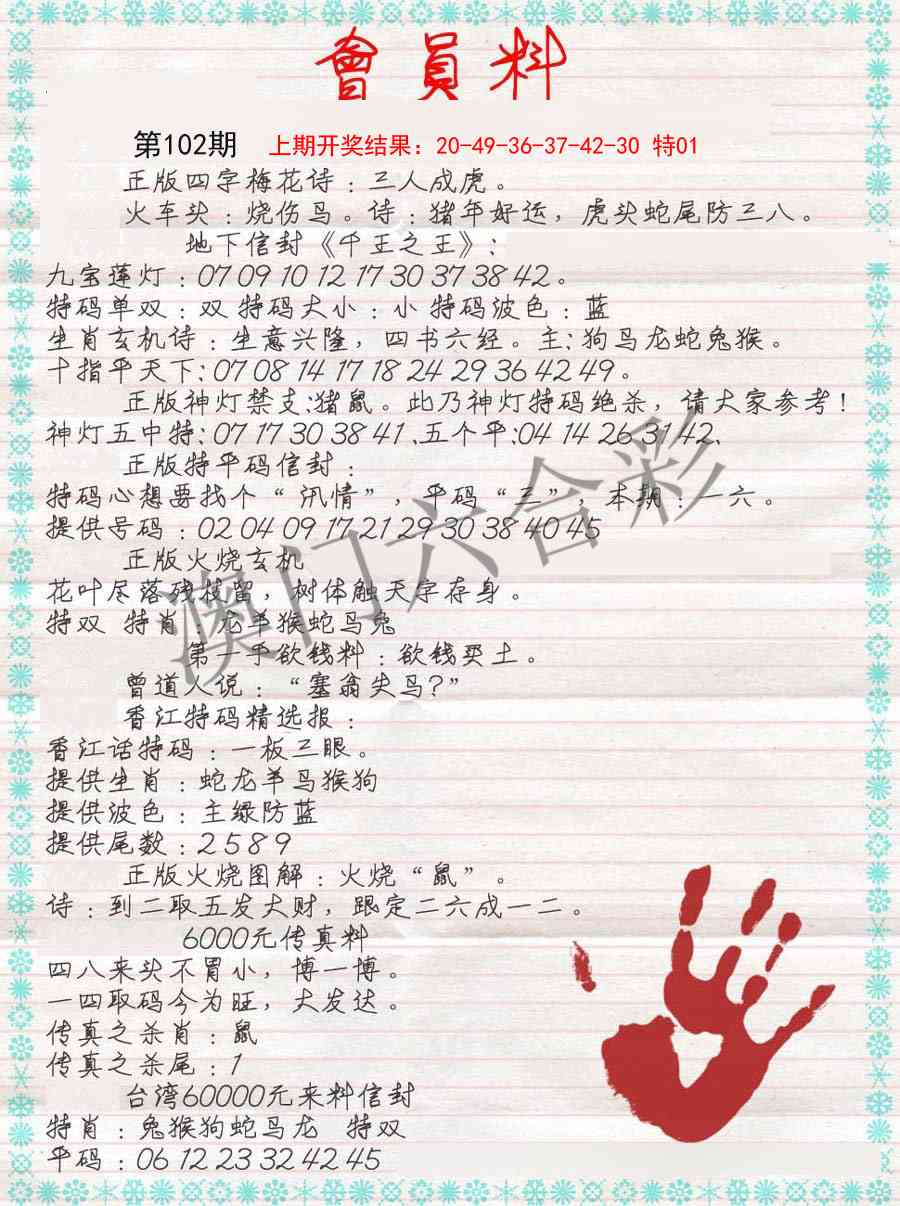 會員料
第102期 上期开奖结果：20-49-36-37-42-30 特01
正版四字梅花诗：三人成虎。
火车头：烧伤鸟。诗：猪年好运，虎头蛇尾防三八。
地下信封《千王之王》：
九宝莲灯：07 09 10 12 17 30 37 38 42。
特码单双：双 特码大小：小 特码波色：蓝
生肖玄机诗：生意兴隆，四书六经。主：狗马龙蛇兔猴。
十指平天下：07 08 14 17 18 24 29 36 42 49。
正版神灯禁支：猪鼠。此乃神灯特码绝杀，请大家参考！
神灯五中特：07 17 30 38 41、五个平：04 14 26 31 42、
正版特平码信封：
特码心想要找个“汛情”，平码“三”，本期：一六。
提供号码：02 04 09 17 21 29 30 38 40 45
正版火烧玄机
花叶尽落残枝留，树体触天字存身。
特双 特肖：龙羊猴蛇马兔
第一手欲钱料：欲钱买土。
曾道人说：“塞翁失马？”
香江特码精选报：
香江话特码：一板三眼。
提供生肖：蛇龙羊马猴狗
提供波色：主绿防蓝
提供尾数：2 5 8 9
正版火烧图解：火烧“鼠”。
诗：到二取五发大财，跟定二六成一二。
6000元传真料
四八来头不冒小，博一博。
一四取码今为旺，大发达。
传真之杀肖：鼠
传真之杀尾：1
台湾60000元来料信封
特肖：兔猴狗蛇马龙 特双
平码：06 12 23 32 42 45
澳门六合彩